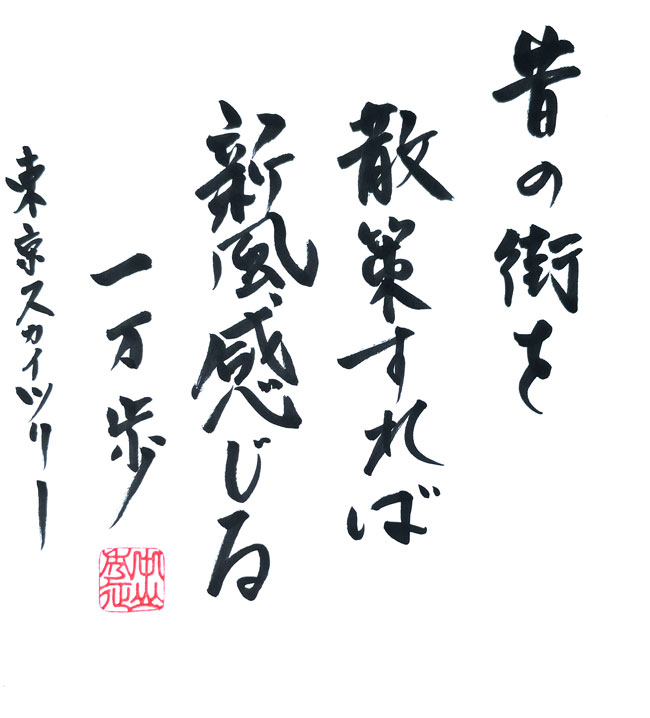 昔の街を
散策すれば
新風感じる
一万歩
東京スカイツリー